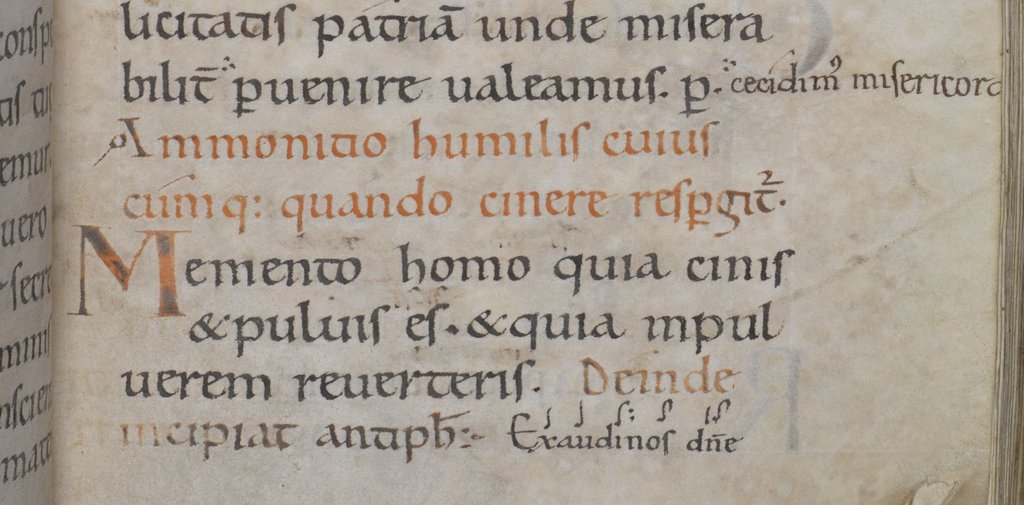 licitatis patriā unde misera
bilit̄ p̲uenire ualeamus. p̲. cecidim᷒ misericord
Ammonitio humilis cuius
cumq: quando cinere resp̲git᷑.
Memento homo quia cinis
&puluis es̄. &quia inpul
uerem reuerteris. Deinde
incipiat antiph̄:- Exaudi nos dn̄e